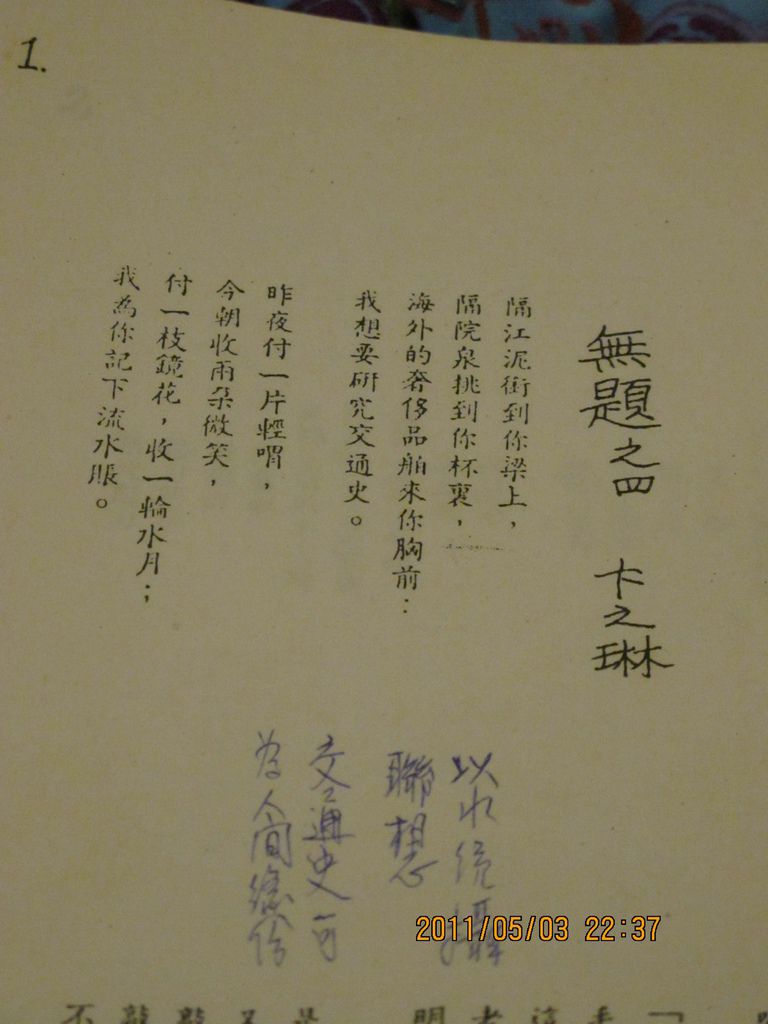 1.
無題之四 卞之琳
隔江泥銜到你梁上，
隔院泉挑到你杯裏，
海外的奢侈品舶來你胸前：
我想要研究交通史。
昨夜付一片輕喟，
今朝收兩朵微笑，
付一枝鏡花，收一輪水月；
我為你記下流水賬。
以水統攝
聯想
交通史可
為人間緣份
2011/05/03 22:37